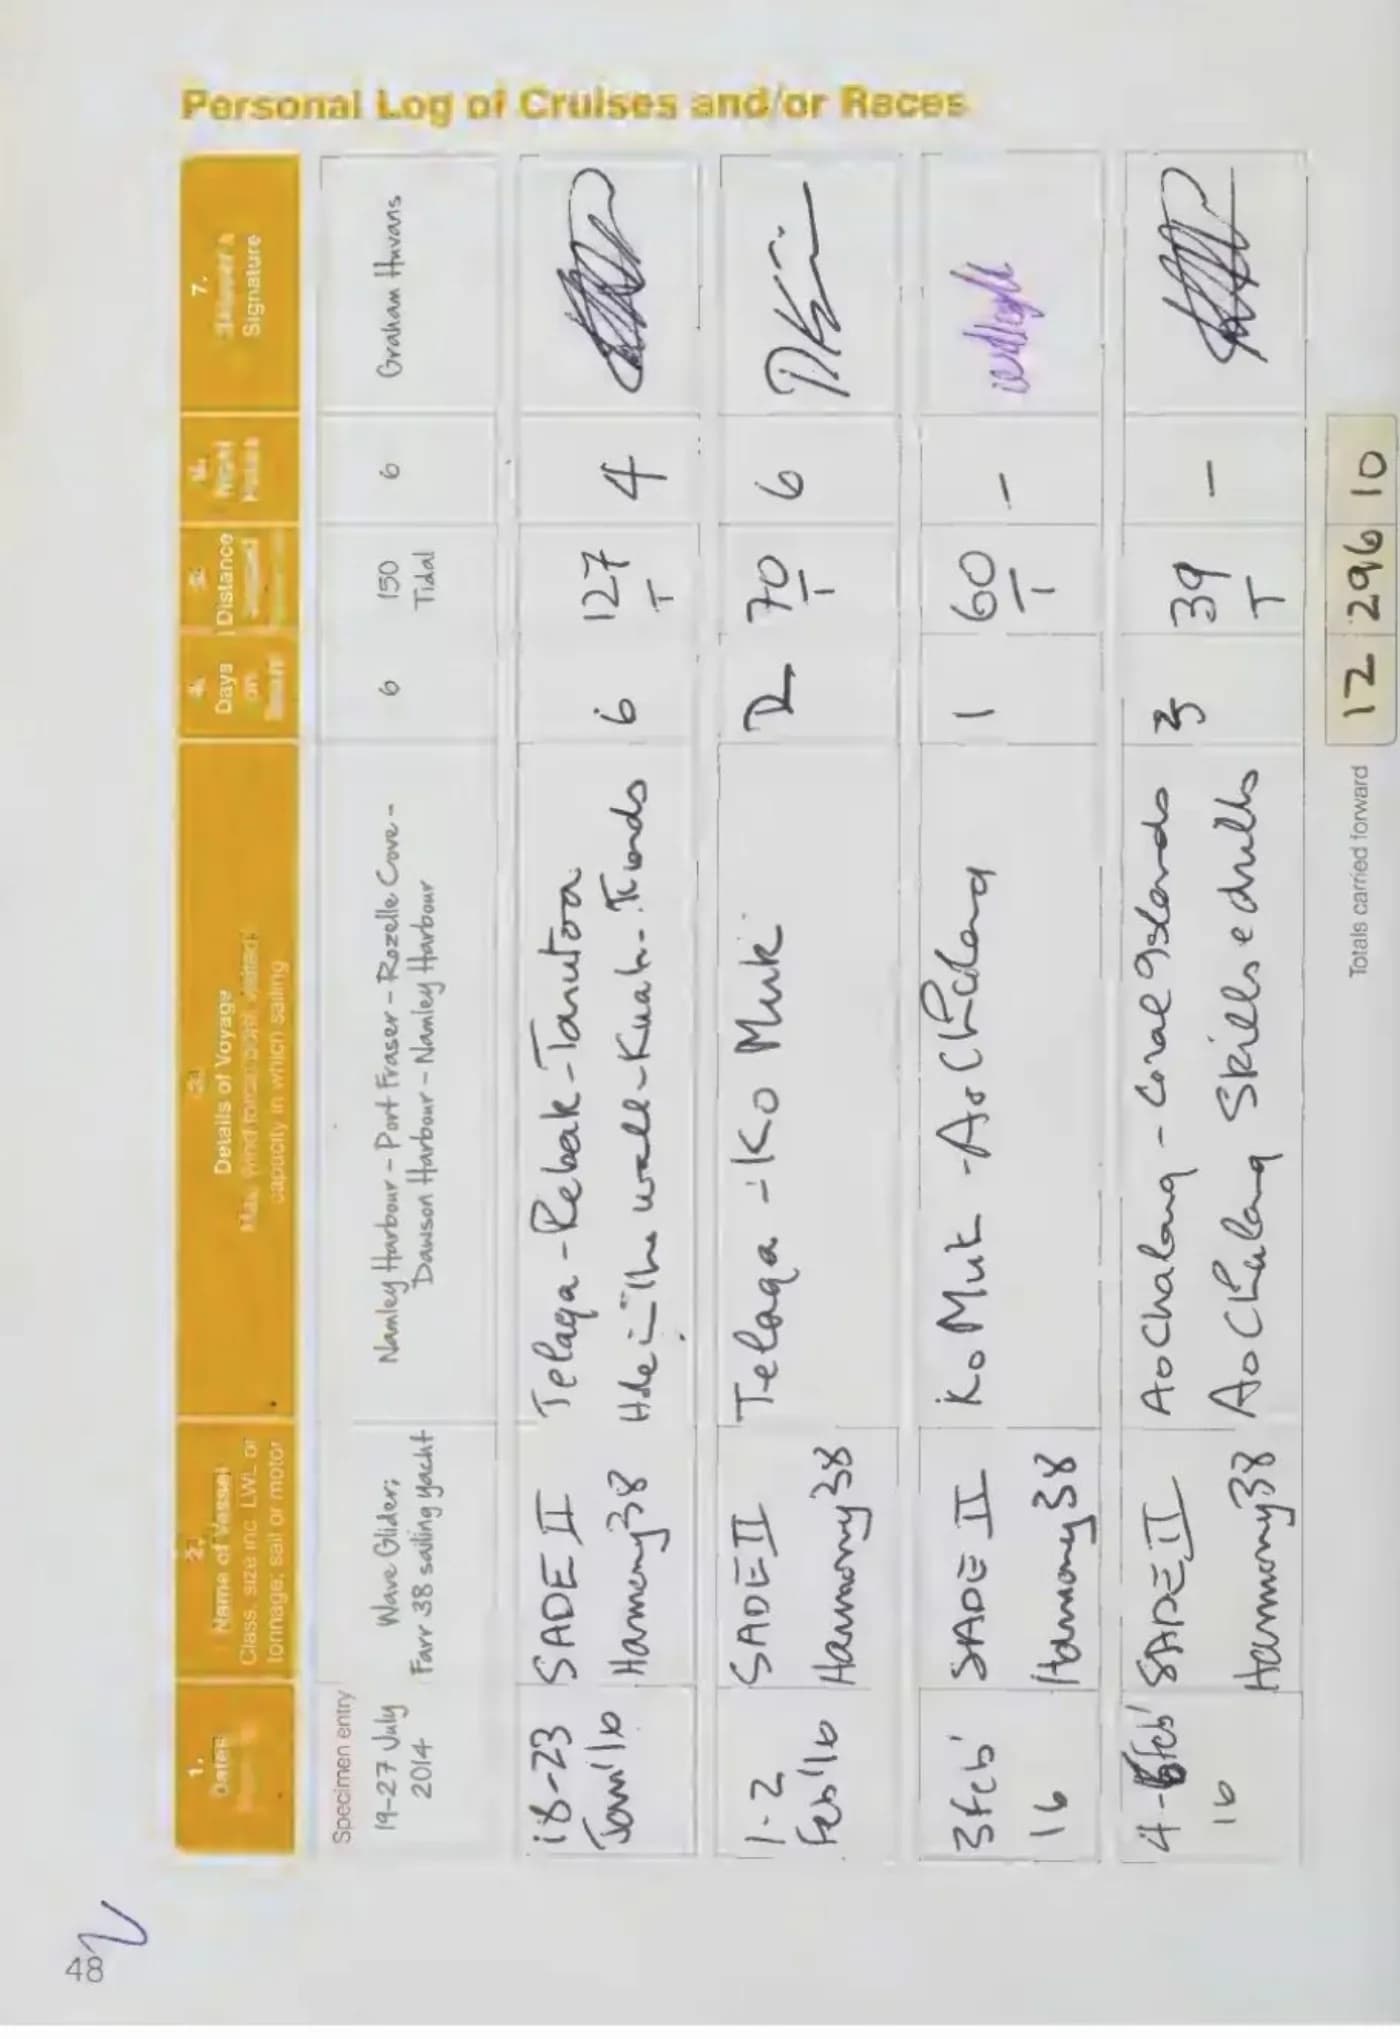 48
Personal Log of Cruises and/or Races
1.
Dates
2.
Name of Vessel
Class, size inc LWL or
tonnage; sail or motor
3.
Details of Voyage
capacity in which sailing
4.
Days
on
5.
Distance
6.
Night
7.
Signature
Specimen entry
19-27 July
2014
Wave Glider;
Farr 38 sailing yacht
Namley Harbour - Port Fraser - Rozelle Cove -
Dawson Harbour - Namley Harbour
6
150
Tidal
6
Graham Huvans
18-23
Jan'16
SADE II
Harmony 38
Telaga - Rebak - Tanutoa
Hole in the wall - Kuah -
6
127
T
4
1-2
Feb'16
SADE II
Harmony 38
Telaga - Ko Muk
70
T
6
3 Feb'
16
SADE II
Harmony 38
Ko Muk - Ao Chalong
1
60
T
-
4-5 Feb'
16
SADE II
Harmony 38
Ao Chalong - Coral Islands
Ao Chalong Skills e drills
3
39
T
-
Totals carried forward
12 296 10